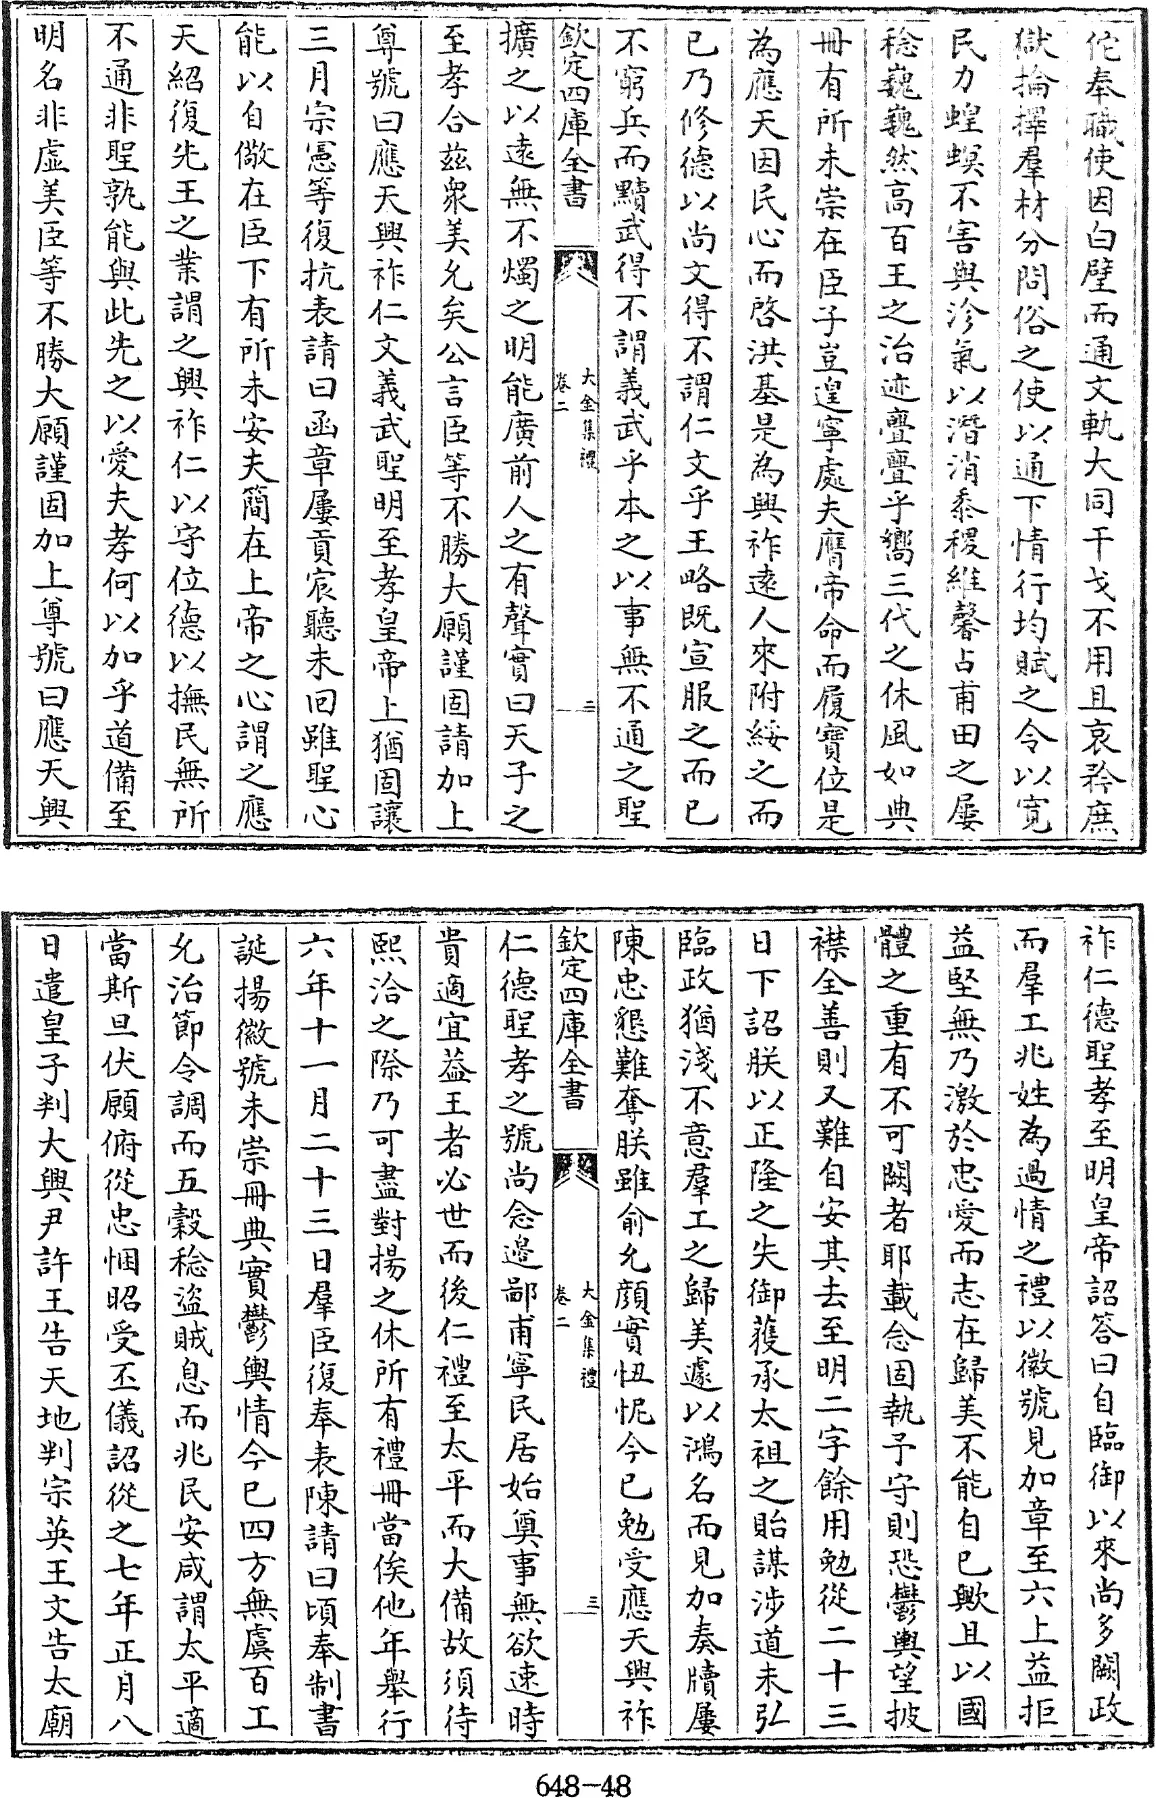 佗奉職使因白璧而通文軌大同干戈不用且哀矜庶
獄掄擇羣材分問俗之使以通下情行均賦之令以寛
民力蝗螟不害與沴氣以潛消黍稷維馨占甫田之屢
稔巍巍然高百王之治迹亹亹乎嚮三代之休風如典
冊有所未崇在臣子豈遑寧處夫膺帝命而履寶位是
為應天因民心而啓洪基是為興祚逺人來附綏之而
已乃修德以尚文得不謂仁文乎王略既宣服之而已
不窮兵而黷武得不謂義武乎本之以事無不通之聖
欽定四庫全書
大金集禮
卷二
二
擴之以逺無不燭之明能廣前人之有聲實曰天子之
至孝合兹衆美允矣公言臣等不勝大願謹固請加上
尊號曰應天興祚仁文義武聖明至孝皇帝上猶固讓
三月宗憲等復抗表請曰函章屢貢宸聽未回雖聖心
能以自儆在臣下有所未安夫簡在上帝之心謂之應
天紹復先王之業謂之興祚仁以守位德以撫民無所
不通非聖孰能與此先之以愛夫孝何以加乎道備至
明名非虚美臣等不勝大願謹固加上尊號曰應天興
祚仁德聖孝至明皇帝詔答曰自臨御以來尚多闕政
而羣工兆姓為過情之禮以徽號見加章至六上益拒
益堅無乃激於忠愛而志在歸美不能自已歟且以國
體之重有不可闕者耶載念固執予守則恐鬱輿望披
襟全善則又難自安其去至明二字餘用勉從二十三
日下詔朕以正隆之失御蒦承太祖之貽謀涉道未弘
臨政猶淺不意羣工之歸美遽以鴻名而見加奏牘屢
陳忠懇難奪朕雖俞允顔實忸怩今已勉受應天興祚
欽定四庫全書
大金集禮
卷二
三
仁德聖孝之號尚念邊鄙甫寧民居始奠事無欲速時
貴適宜益王者必世而後仁禮至太平而大備故須待
熙洽之際乃可盡對揚之休所有禮冊當俟他年舉行
六年十一月二十三日羣臣復奉表陳請曰頃奉制書
誕揚徽號未崇冊典實鬱輿情今已四方無虞百工
允治節令調而五穀稔盜賊息而兆民安咸謂太平適
當斯旦伏願俯從忠悃昭受丕儀詔從之七年正月八
日遣皇子判大興尹許王告天地判宗英王文告太廟
648-48